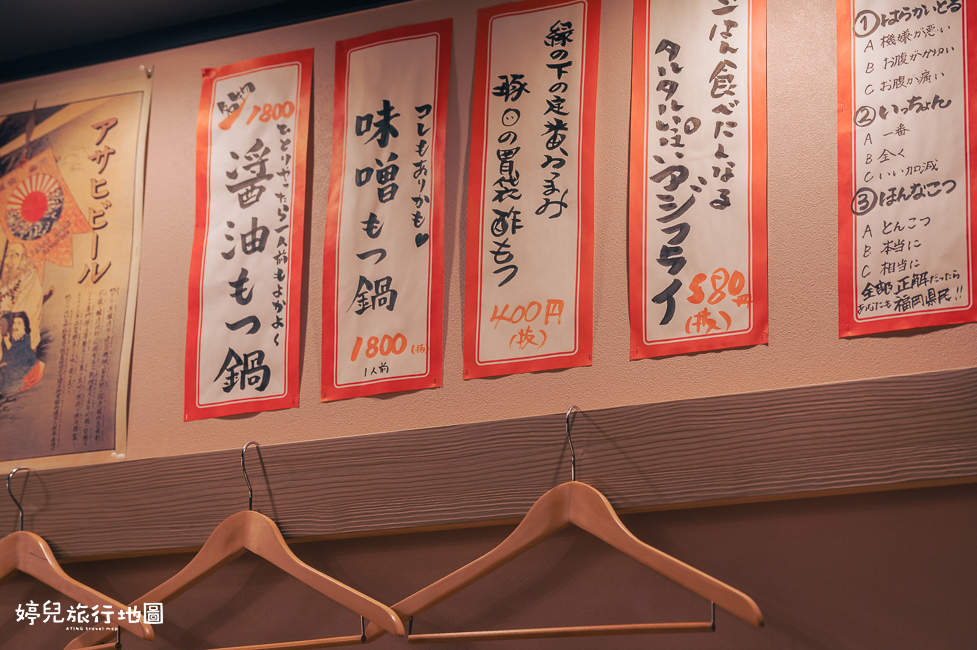 ①はらかいとる
A 機嫌が悪い
B お腹がかゆい
C お腹が痛い
②いっちょん
A 一番
B 全く
C いい加減
③ほんなこつ
A とんこつ
B 本当に
C 相当に
全部正解だったら
あなたも福岡県民!!
ごはん食べにんなる
アジフライ
580円
(抜)
縁の下の定番おつまみ
豚の胃袋酢もつ
400円
(抜)
コレもありかも♥
味噌もつ鍋
1800
1人前
1800
醤油もつ鍋
アサヒビール
婷兒旅行地圖
ATING travel map